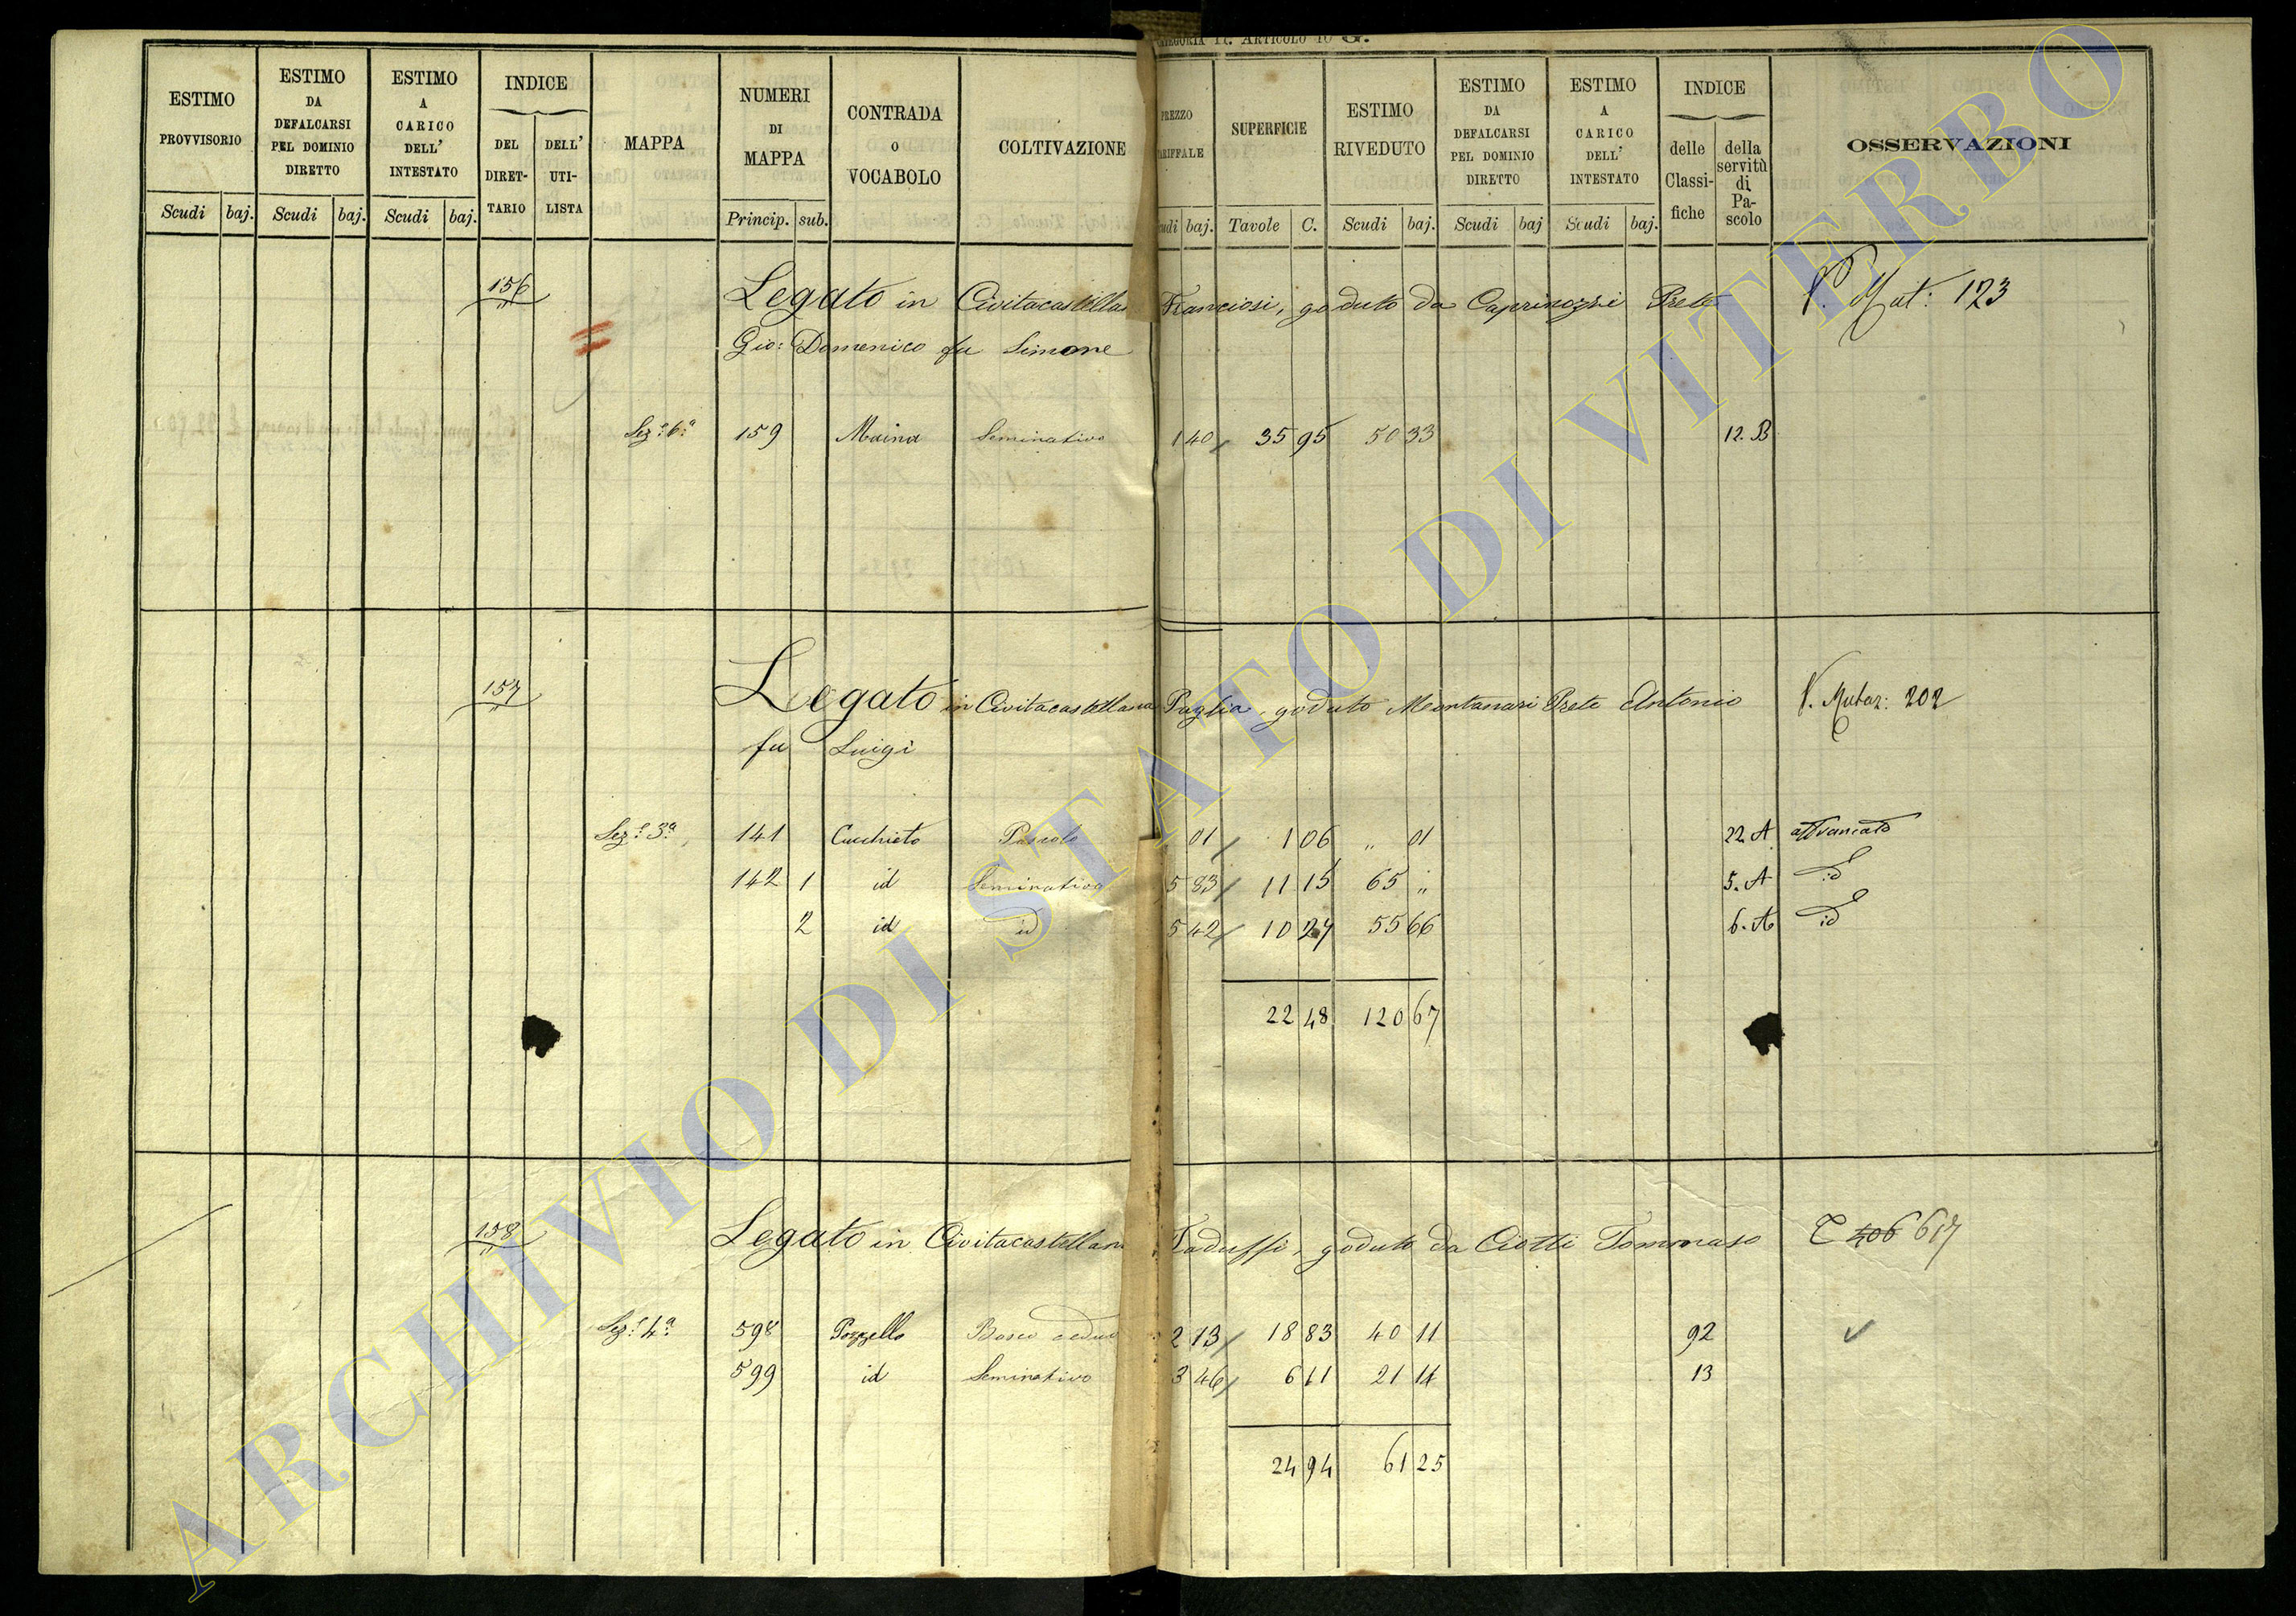 CATEGORIA 1ª. ARTICOLO 10 G.
ESTIMO PROVVISORIO Scudi baj.
ESTIMO DA DEFALCARSI PEL DOMINIO DIRETTO Scudi baj.
ESTIMO A CARICO DELL' INTESTATO Scudi baj.
INDICE DEL DIRET-TARIO DELL' UTI-LISTA
MAPPA
NUMERI DI MAPPA Princip. sub.
CONTRADA O VOCABOLO
COLTIVAZIONE
PREZZO TARIFFALE Scudi baj.
SUPERFICIE Tavole C.
ESTIMO RIVEDUTO Scudi baj.
ESTIMO DA DEFALCARSI PEL DOMINIO DIRETTO Scudi baj
ESTIMO A CARICO DELL' INTESTATO Scudi baj.
INDICE delle Classi-fiche della servitù di Pa-scolo
OSSERVAZIONI
156 Legato in Civitacastellana Franciosi, goduto da Caprinozzi Prete V. Mut: 123
Gio: Domenico fu Simone
Sez.e 6.a 159 Maina Seminativo 1 40 35 95 50 33 12. B
157 Legato in Civitacastellana Paglia, goduto Montanari Prete Antonio V. Mutaz: 202
fu Luigi
Sez.e 3.a 141 Cucchieto Pascolo 01 1 06 " 01 22 A affrancato
142 1 id Seminativo 5 83 11 15 65 " 5. A id
2 id id 5 42 10 27 55 66 6. A id
22 48 120 67
158 Legato in Civitacastellana Taduffi, goduto da Ciotti Tommaso C 406 617
Sez.e 4.a 598 Pozzello Bosco ceduo 2 13 18 83 40 11 92
599 id Seminativo 3 46 6 11 21 14 13
24 94 61 25
ARCHIVIO DI STATO DI VITERBO